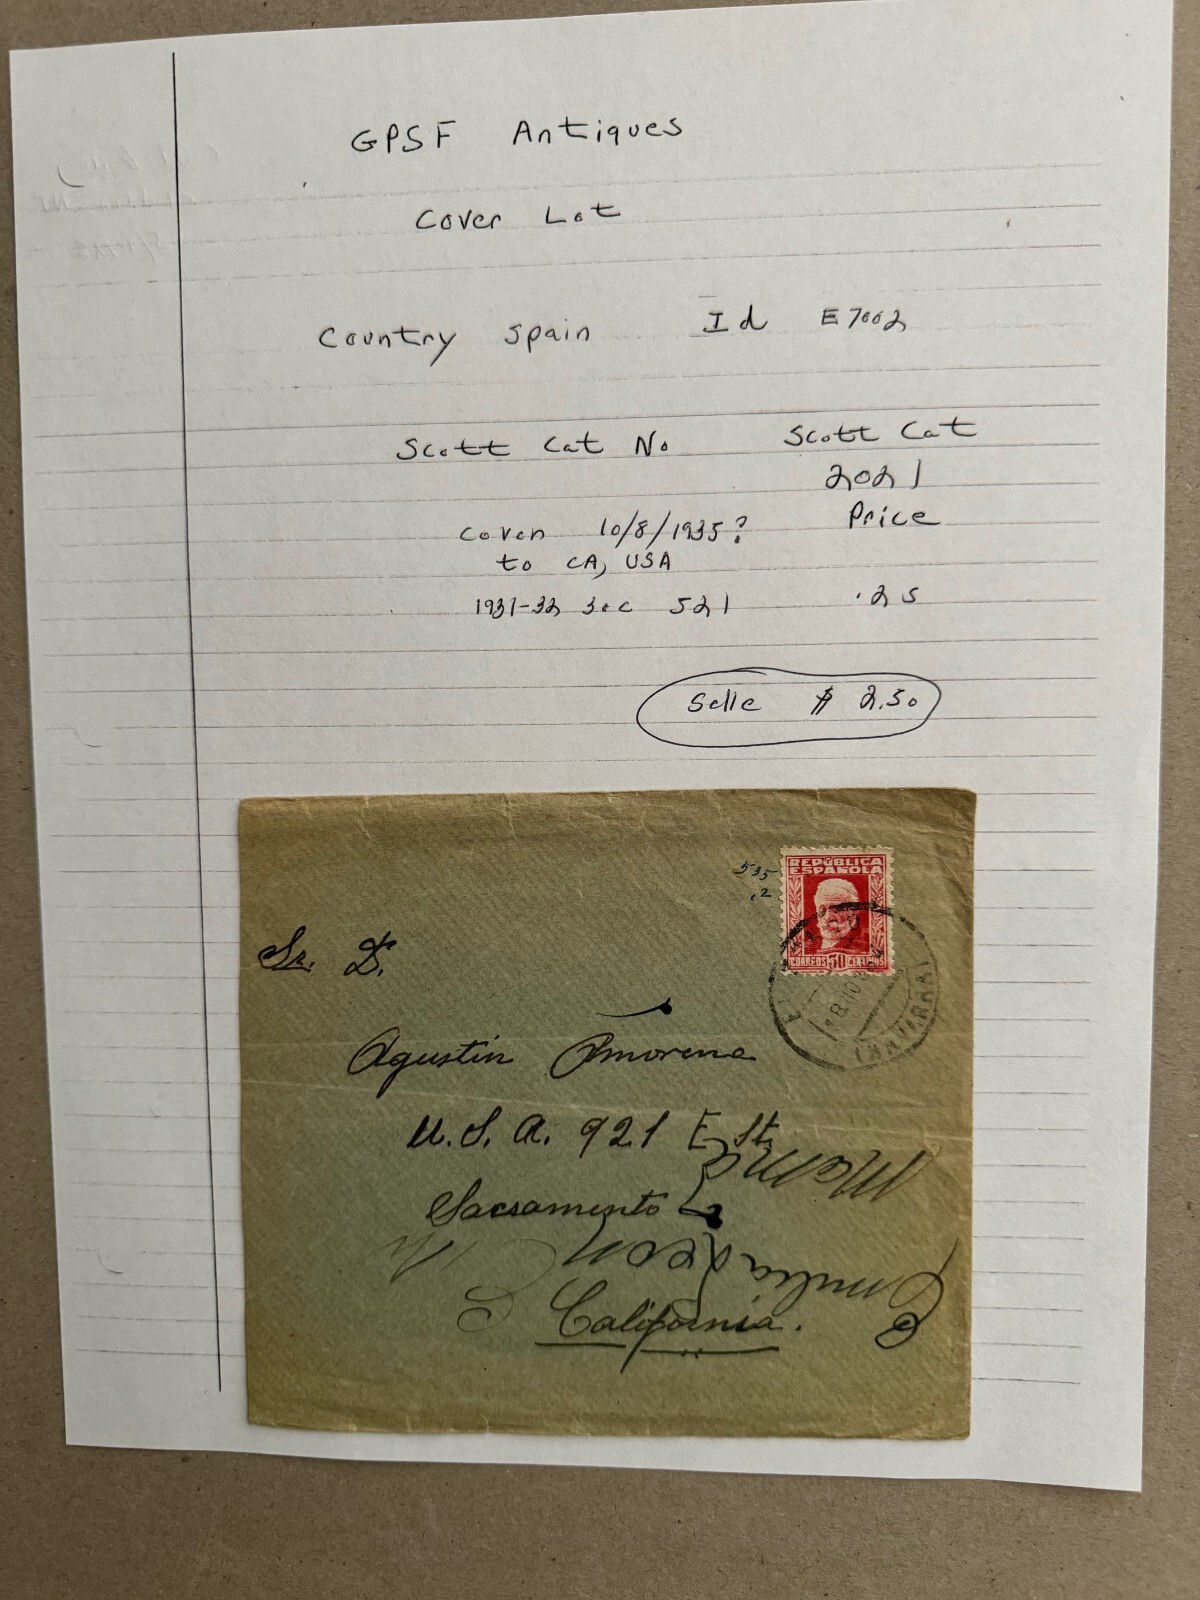 GPSF Antiques
Cover Lot
Country Spain Id E7002
Scott Cat No Scott Cat
2021
Price
Cover 10/8/1935?
to CA, USA
1931-32 Sec 521 .25
Selle $ 2.50
535
.2
REPÚBLICA
ESPAÑOLA
CORREOS 30 CENTIMOS
(NAVARRA)
Sr. D.
Agustin Amorena
U.S.A. 921 E St.
Sacramento
California.
Emilia Leon